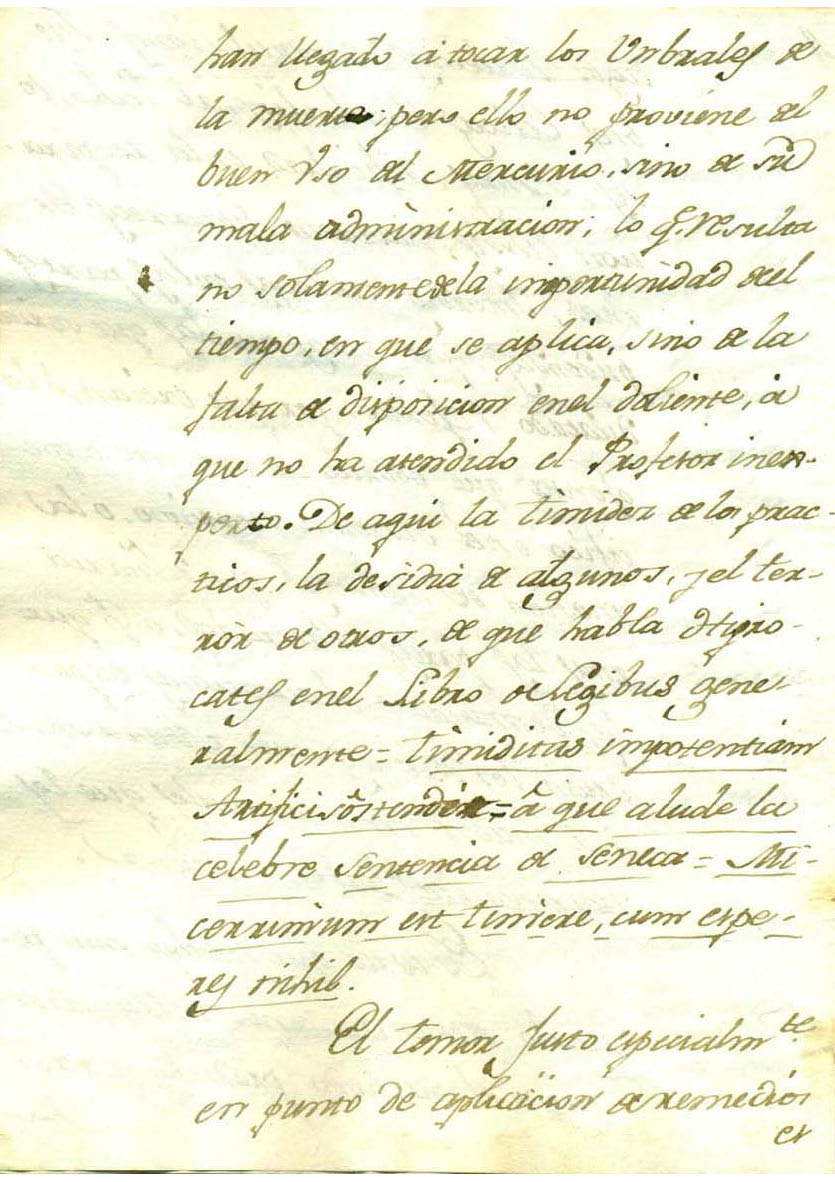 han llegado á tocar los Vmbrales de
la muerte; pero ello no proviene del
buen Vso del Mercurio, sino de sũ
mala administracion; lo q.e resulta
no solamente de la importunidad del
tiempo, en que se aplica, sino de la
falta de disposicion enel doliente, á
que no ha atendido el Profesor inex-
perto. De aqui la timidez de los prac-
ticos, la desidia de algunos, y el ter-
ror de otros, de que habla Hypo-
crates enel Libro de Legibus gene-
ralmente = timiditas impotentiam
Artificis ostendit = á que alude la
celebre sentencia de Seneca = Mi-
cerrimum est timere, cum espe-
res nihil.
El temor justo especialm.te
en punto de aplicacion de remedios
es